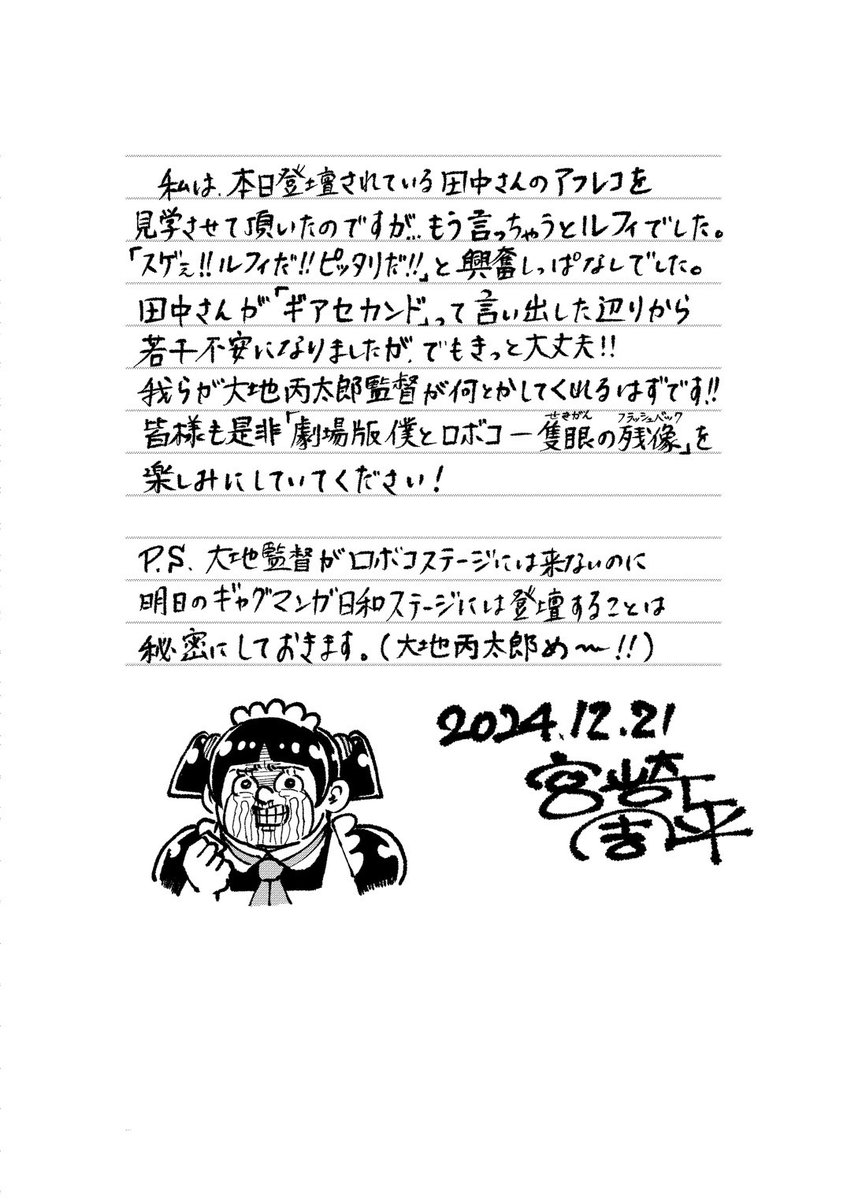 私は、本日登壇されている田中さんのアフレコを
見学させて頂いたのですが…もう言っちゃうとルフィでした。
「スゲェ!!ルフィだ!!ピッタリだ!!」と興奮しっぱなしでした。
田中さんが「ギアセカンド」って言い出した辺りから
若干不安になりましたが、でもきっと大丈夫!!
我らが大地丙太郎監督が何とかしてくれるはずです!!
皆様も是非「劇場版僕とロボコ ー隻眼の残像」を
せきがん フラッシュバック
楽しみにしていてください!
P.S. 大地監督がロボコステージには来ないのに
明日のギャグマンガ日和ステージには登壇することは
秘密にしておきます。(大地丙太郎め〜!!)
2024.12.21
宮崎周平